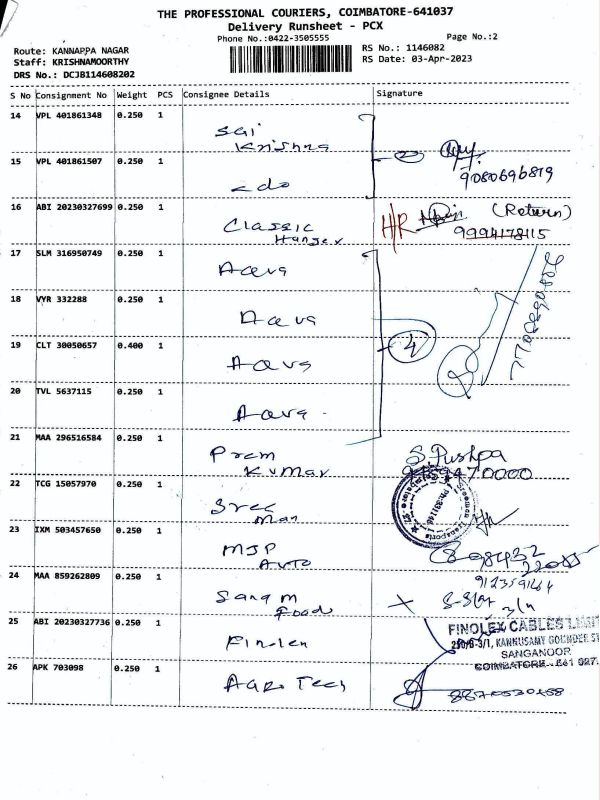 THE PROFESSIONAL COURIERS, COIMBATORE-641037
Delivery Runsheet - PCX
Phone No.:0422-3505555
Page No.:2
Route: KANNAPPA NAGAR
Staff: KRISHNAMOORTHY
DRS No.: DCJB114608202
RS No.: 1146082
RS Date: 03-Apr-2023
S No Consignment No Weight PCS Consignee Details Signature
14 VPL 401861348 0.250 1
Sai
Krishna
15 VPL 401861507 0.250 1
9080696819
16 ABI 20230327699 0.250 1
Classic
H/R (Return)
9994178115
17 SLM 316950749 0.250 1
Aava
18 VYR 332288 0.250 1
Aava
19 CLT 30050657 0.400 1
Aava
4
20 TVL 5637115 0.250 1
Aava
21 MAA 296516584 0.250 1
Prem
Kumar
S. Pushpa
22 TCG 15057970 0.250 1
Sree
Man
Sreeman Transports
23 IXM 503457650 0.250 1
MJP
Auto
98432
24 MAA 859262809 0.250 1
Sangm
Foods
25 ABI 20230327736 0.250 1
Finolex
FINOLEX CABLES LIMIT
KANNUSAMY GOUNDER ST
SANGANOOR
COIMBATORE - 641 027.
26 APK 703098 0.250 1
Tech